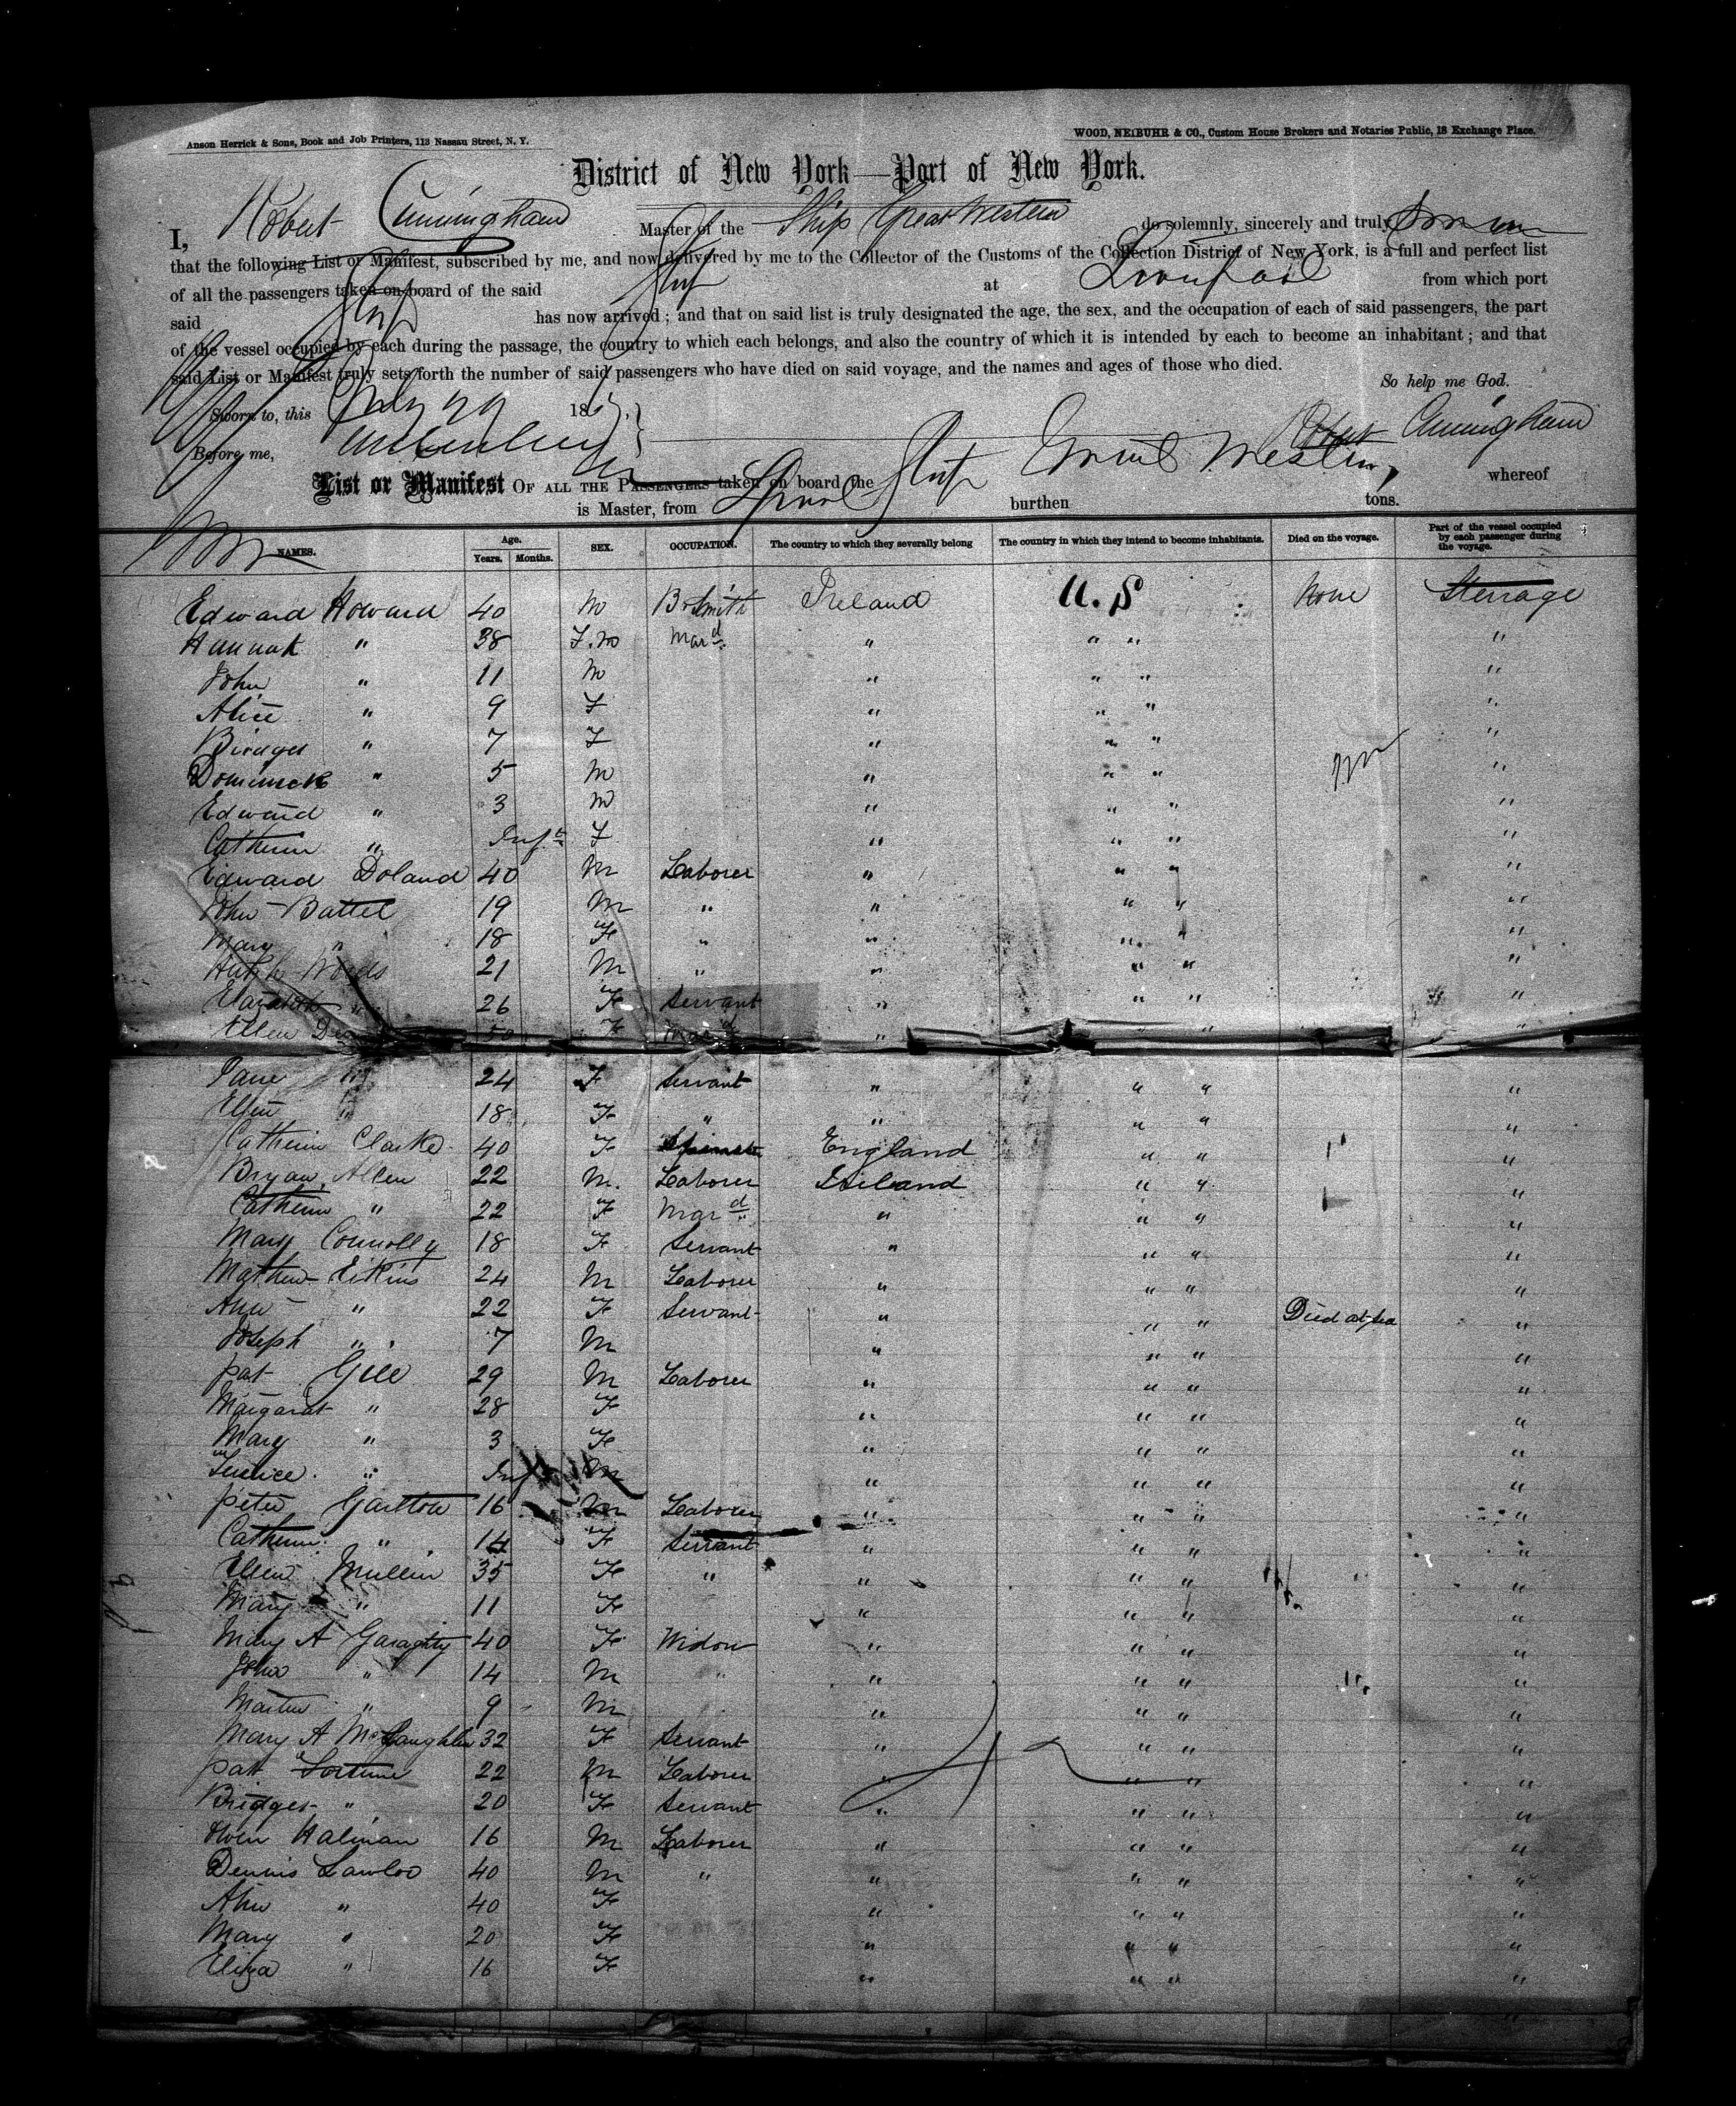 Anson Herrick & Sons, Book and Job Printers, 113 Nassau Street, N. Y.
WOOD, NEIBUHR & CO., Custom House Brokers and Notaries Public, 18 Exchange Place.
District of New York—Port of New York.
I, Robert Cunningham Master of the Ship Great Western do solemnly, sincerely and truly
that the following List or Manifest, subscribed by me, and now delivered by me to the Collector of the Customs of the Collection District of New York, is a full and perfect list
of all the passengers taken on board of the said Ship at Liverpool from which port
said Ship has now arrived; and that on said list is truly designated the age, the sex, and the occupation of each of said passengers, the part
of the vessel occupied by each during the passage, the country to which each belongs, and also the country of which it is intended by each to become an inhabitant; and that
said List or Manifest truly sets forth the number of said passengers who have died on said voyage, and the names and ages of those who died.
So help me God.
Sworn to, this 186
Robert Cunningham
Before me,
List or Manifest OF ALL THE PASSENGERS taken on board the Ship Great Western, whereof
is Master, from burthen tons.
NAMES. Age. Years. Months. SEX. OCCUPATION. The country to which they severally belong The country in which they intend to become inhabitants. Died on the voyage. Part of the vessel occupied by each passenger during the voyage.
Edward Howard 40 M Br Smith Ireland U. S None Sterrage
Hannah " 38 F. m Mard " " " "
John " 11 M " " " "
Alice " 9 F " " " "
Bridget " 7 F " " " "
Dominick " 5 M " " " "
Edward " 3 M " " " "
Catherin " Inft F " " " "
Edward Doland 40 M Laborer " " " "
John Battel 19 M " " " " "
Mary " 18 F " " " " "
Hugh Woods 21 M " " " " "
Elizabeth " 26 F Servant " " " "
Ellen 50 F Mard " " " "
Jane " 24 F Servant " " " "
Ellen " 18 F " " " " "
Catherin Clarke 40 F Spinster England " " "
Bryan Allen 22 M. Laborer Ireland " " "
Catherin " 22 F Mard " " " "
Mary Connolly 18 F Servant " " " "
Mathew Eikins 24 M Laborer " " " "
Ann " 22 F Servant " " " Died at sea "
Joseph " 7 M " " " "
pat Gill 29 M Laborer " " " "
Margarat " 28 F " " " "
Mary " 3 F " " " "
" Inft M " " " "
peter Gartton 16 M Laborer " " " "
Catherin " 14 F Servant " " " "
Ellen Mullin 35 F " " " " "
Mary " 11 F " " " "
Mary A Garaghty 40 F Widow " " " "
John " 14 M " " " "
Martin " 9 M " " " "
Mary A McGaughlin 32 F Servant " " " "
pat Fortune 22 M Laborer " " " "
Bridget " 20 F Servant " " " "
Owen Halinan 16 M Laborer " " " "
Dennis Lawlor 40 M " " " " "
Ann " 40 F " " " "
Mary " 20 F " " " "
Eliza " 16 F " " " "